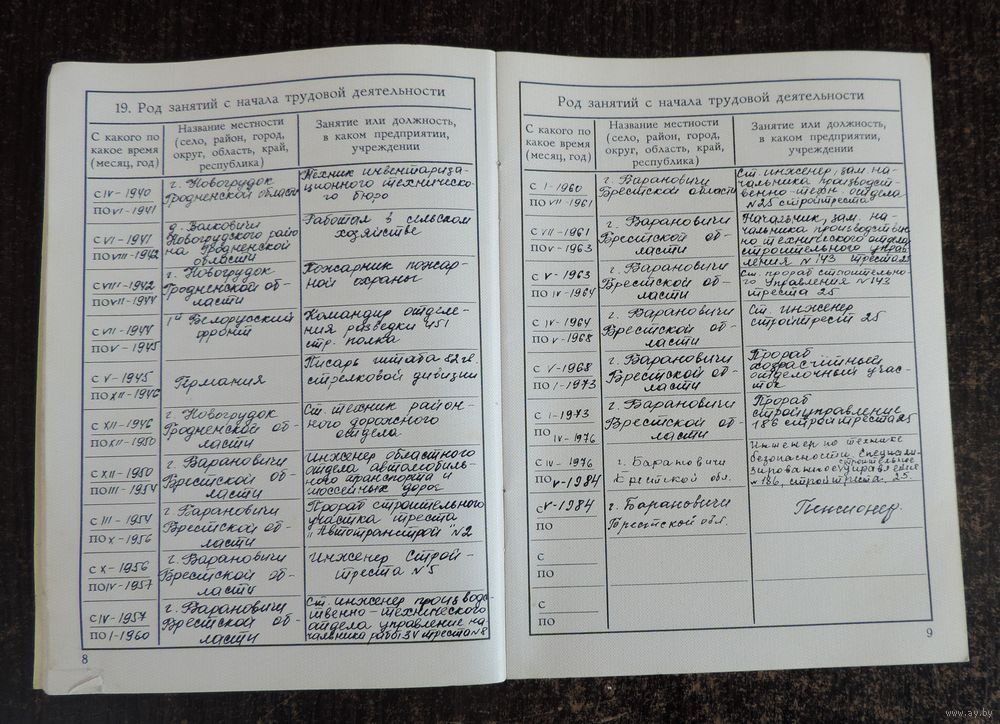 19. Род занятий с начала трудовой деятельности
С какого по
какое время
(месяц, год)
Название местности
(село, район, город,
округ, область, край,
республика)
Занятие или должность,
в каком предприятии,
учреждении
с IV-1940
по VI-1941
г. Новогрудок
Гродненской области
Техник инвентариза-
ционного техническо-
го бюро
с VI-1941
по VIII-1942
д. Волковичи
Новогрудского райо
на Гродненской
области
Работал в сельском
хозяйстве
с VIII-1942
по VII-1944
г. Новогрудок
Гродненской об-
ласти
Пожарник пожар-
ной охраны
с VII-1944
по V-1945
1й Белорусский
фронт
Командир отделе-
ния разведки 451
стр. полка
с V-1945
по XII-1946
Германия
Писарь штаба 82 гв.
стрелковой дивизии
с XII-1946
по XII-1950
г. Новогрудок
Гродненской об-
ласти
Ст. техник район-
ного дорожного
отдела
с XII-1950
по III-1954
г. Барановичи
Брестской об-
ласти
Инженер областного
отдела автомобиль-
ного транспорта и
шоссейных дорог
с III-1954
по X-1956
г. Барановичи
Брестской об-
ласти
Прораб строительного
участка треста
"Автотрансстрой" №2
с X-1956
по IV-1957
г. Барановичи
Брестской об-
ласти
Инженер Строй-
треста №5
с IV-1957
по I-1960
г. Барановичи
Брестской об-
ласти
Ст. инженер производ-
ственно-технического
отдела управление на-
чальника работ 3V треста №8
8
Род занятий с начала трудовой деятельности
С какого по
какое время
(месяц, год)
Название местности
(село, район, город,
округ, область, край,
республика)
Занятие или должность,
в каком предприятии,
учреждении
с I-1960
по VII-1961
г. Барановичи
Брестской области
Ст. инженер, зам. на-
чальника производст-
венно-техн. отдела
№25 стройтреста
с VII-1961
по V-1963
г. Барановичи
Брестской об-
ласти
Начальник, зам. на-
чальника производствен-
но технического отдела
строительного управ
ления №143 треста 25
с V-1963
по IV-1964
г. Барановичи
Брестской об-
ласти
Ст. прораб строительно-
го управления №143
треста 25
с IV-1964
по V-1968
г. Барановичи
Брестской об-
ласти
Ст. инженер
стройтрест 25
с V-1968
по I-1973
г. Барановичи
Брестской об-
ласти
Прораб
хозрасчётный
отделочный учас-
ток
с I-1973
по
IV-1976
г. Барановичи
Брестской об-
ласти
Прораб
стройуправление
186 стройтреста 25
с IV-1976
по V-1984
г. Барановичи
Брестской обл.
Инженер по технике
безопасности специали-
строительное
зированное управление
№186, стройтреста 25.
с V-1984
по
г. Барановичи
Брестской обл.
Пенсионер.
с
по
с
по
9
www.ay.by